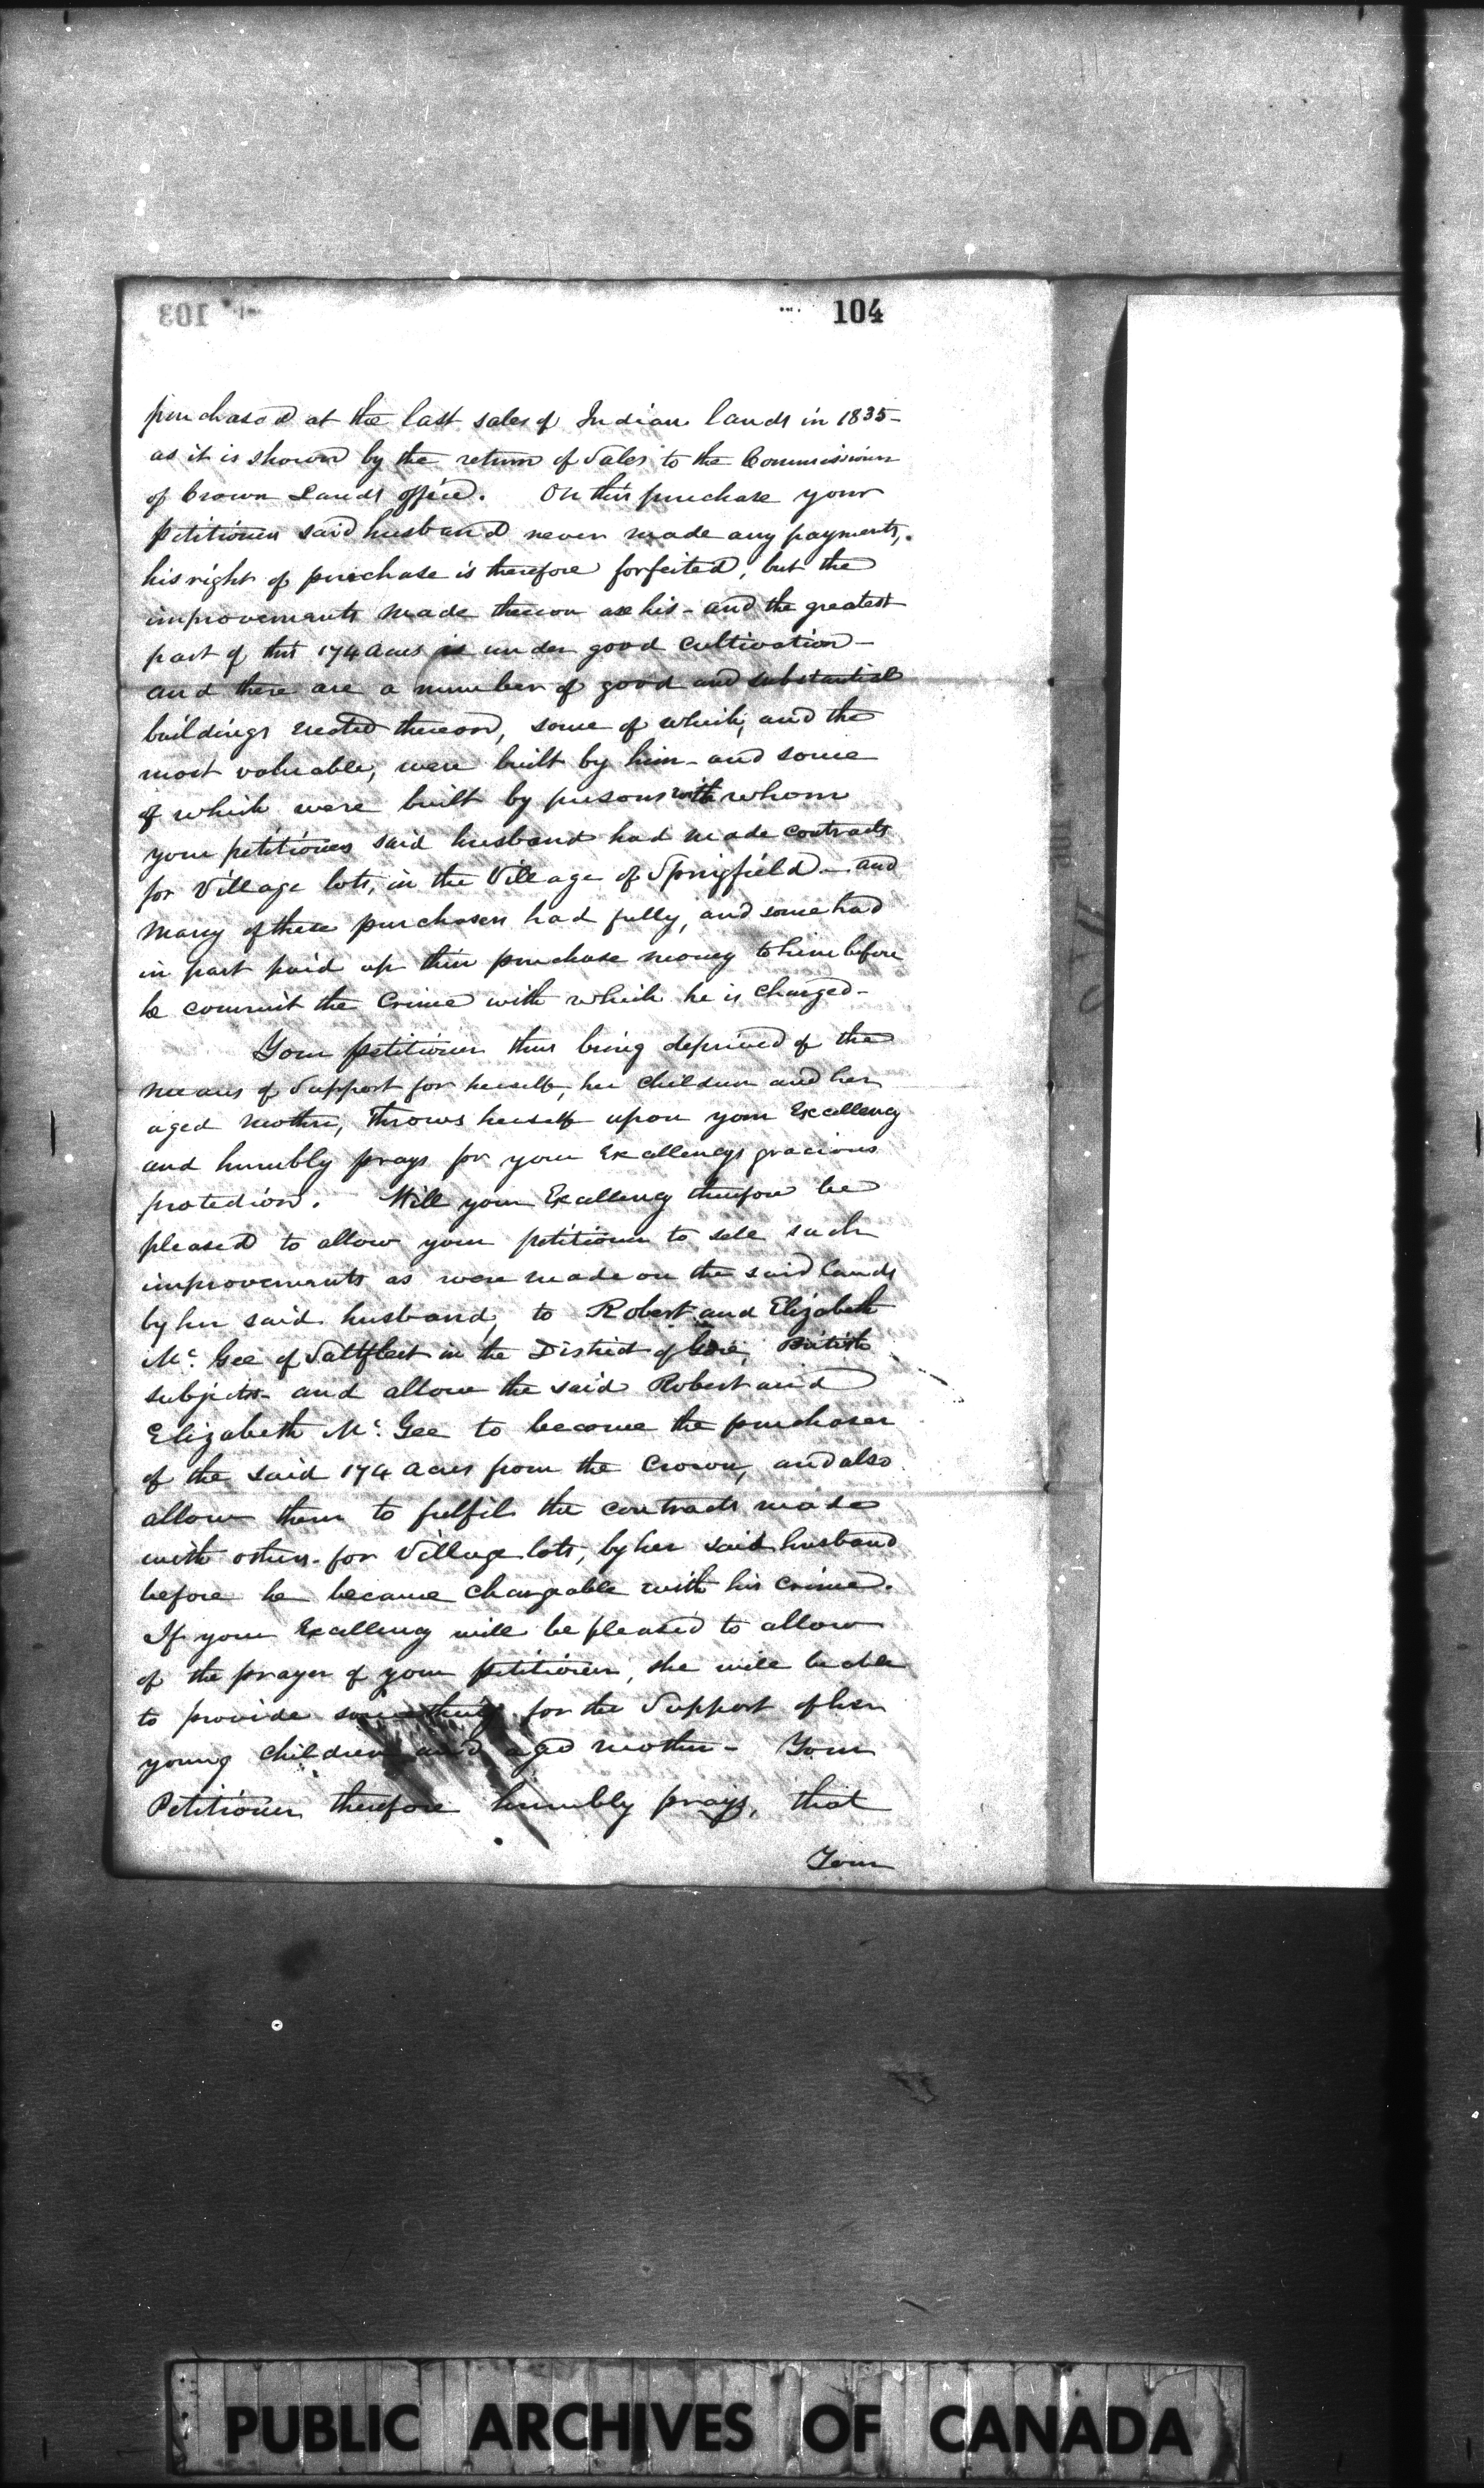 104
purchased at the last sales of Indian lands in 1835 -
as it is shown by the return of Sales to the Commissioner
of Crown Lands office. On this purchase your
petitioners said husband never made any payments,
his right of purchase is therefore forfeited, but the
improvements made thereon are his - and the greatest
part of this 174 acres is under good cultivation -
and there are a number of good and substantial
buildings erected thereon, some of which, and the
most valuable, were built by him - and some
of which were built by persons with whom
your petitioners said husband had made contracts
for Village lots, in the Village of Springfield - and
many of these purchasers had fully, and some had
in part paid up their purchase money to him before
he commit the Crime with which he is charged -
Your petitioner thus being deprived of the
means of Support for herself, her children and her
aged mother, throws herself upon your Excellency
and humbly prays for your Excellencys gracious
protection. Will your Excellency therefore be
pleased to allow your petitioner to sell such
improvements as were made on the said lands
by her said husband, to Robert and Elizabeth
Mc. Gee of Saltfleet in the District of Gore, British
subjects - and allow the said Robert and
Elizabeth Mc. Gee to become the purchaser
of the said 174 acres from the Crown, and also
allow them to fulfil the contracts made
with others for Village lots, by her said husband
before he became chargeable with his crime.
If your Excellency will be pleased to allow
of the prayer of your petitioner, she will be able
to provide something for the Support of her
young children and aged mother - Your
Petitioner therefore humbly prays, that
Your
PUBLIC ARCHIVES OF CANADA